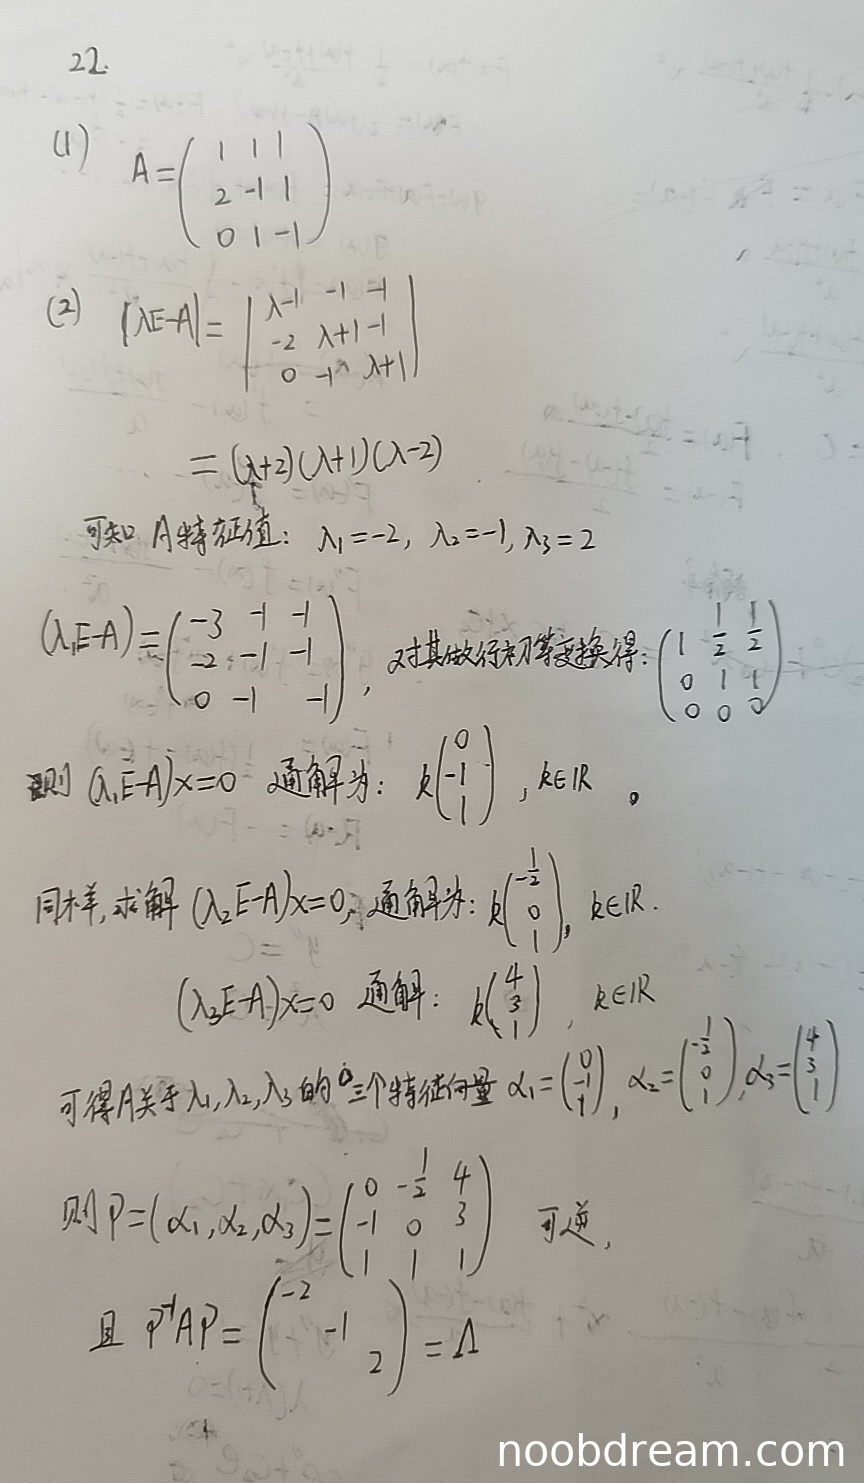 22.
(1) A = ( 1 1 1
2 -1 1
0 1 -1 )
(2) |λE-A| = | λ-1 -1 -1
-2 λ+1 -1
0 -1 λ+1 |
= (λ+2)(λ+1)(λ-2)
可知 A特征值: λ₁=-2, λ₂=-1, λ₃=2
(λ₁E-A) = ( -3 -1 -1
-2 -1 -1
0 -1 -1 ), 对其做行初等变换得: ( 1 1/2 1/2
0 1 1
0 0 0 )
则 (λ₁E-A)x=0 通解为: k( 0
-1
1 ), k∈IR 。
同样, 求解 (λ₂E-A)x=0, 通解为: k( -1/2
0
1 ), k∈IR.
(λ₃E-A)x=0 通解: k( 4
3
1 ), k∈IR
可得A关于λ₁,λ₂,λ₃的三个特征向量 α₁=( 0
-1
1 ), α₂=( -1/2
0
1 ), α₃=( 4
3
1 )
则 P=(α₁,α₂,α₃)=( 0 -1/2 4
-1 0 3
1 1 1 ) 可逆,
且 P⁻¹AP = ( -2
-1
2 ) = Λ
noobdream.com